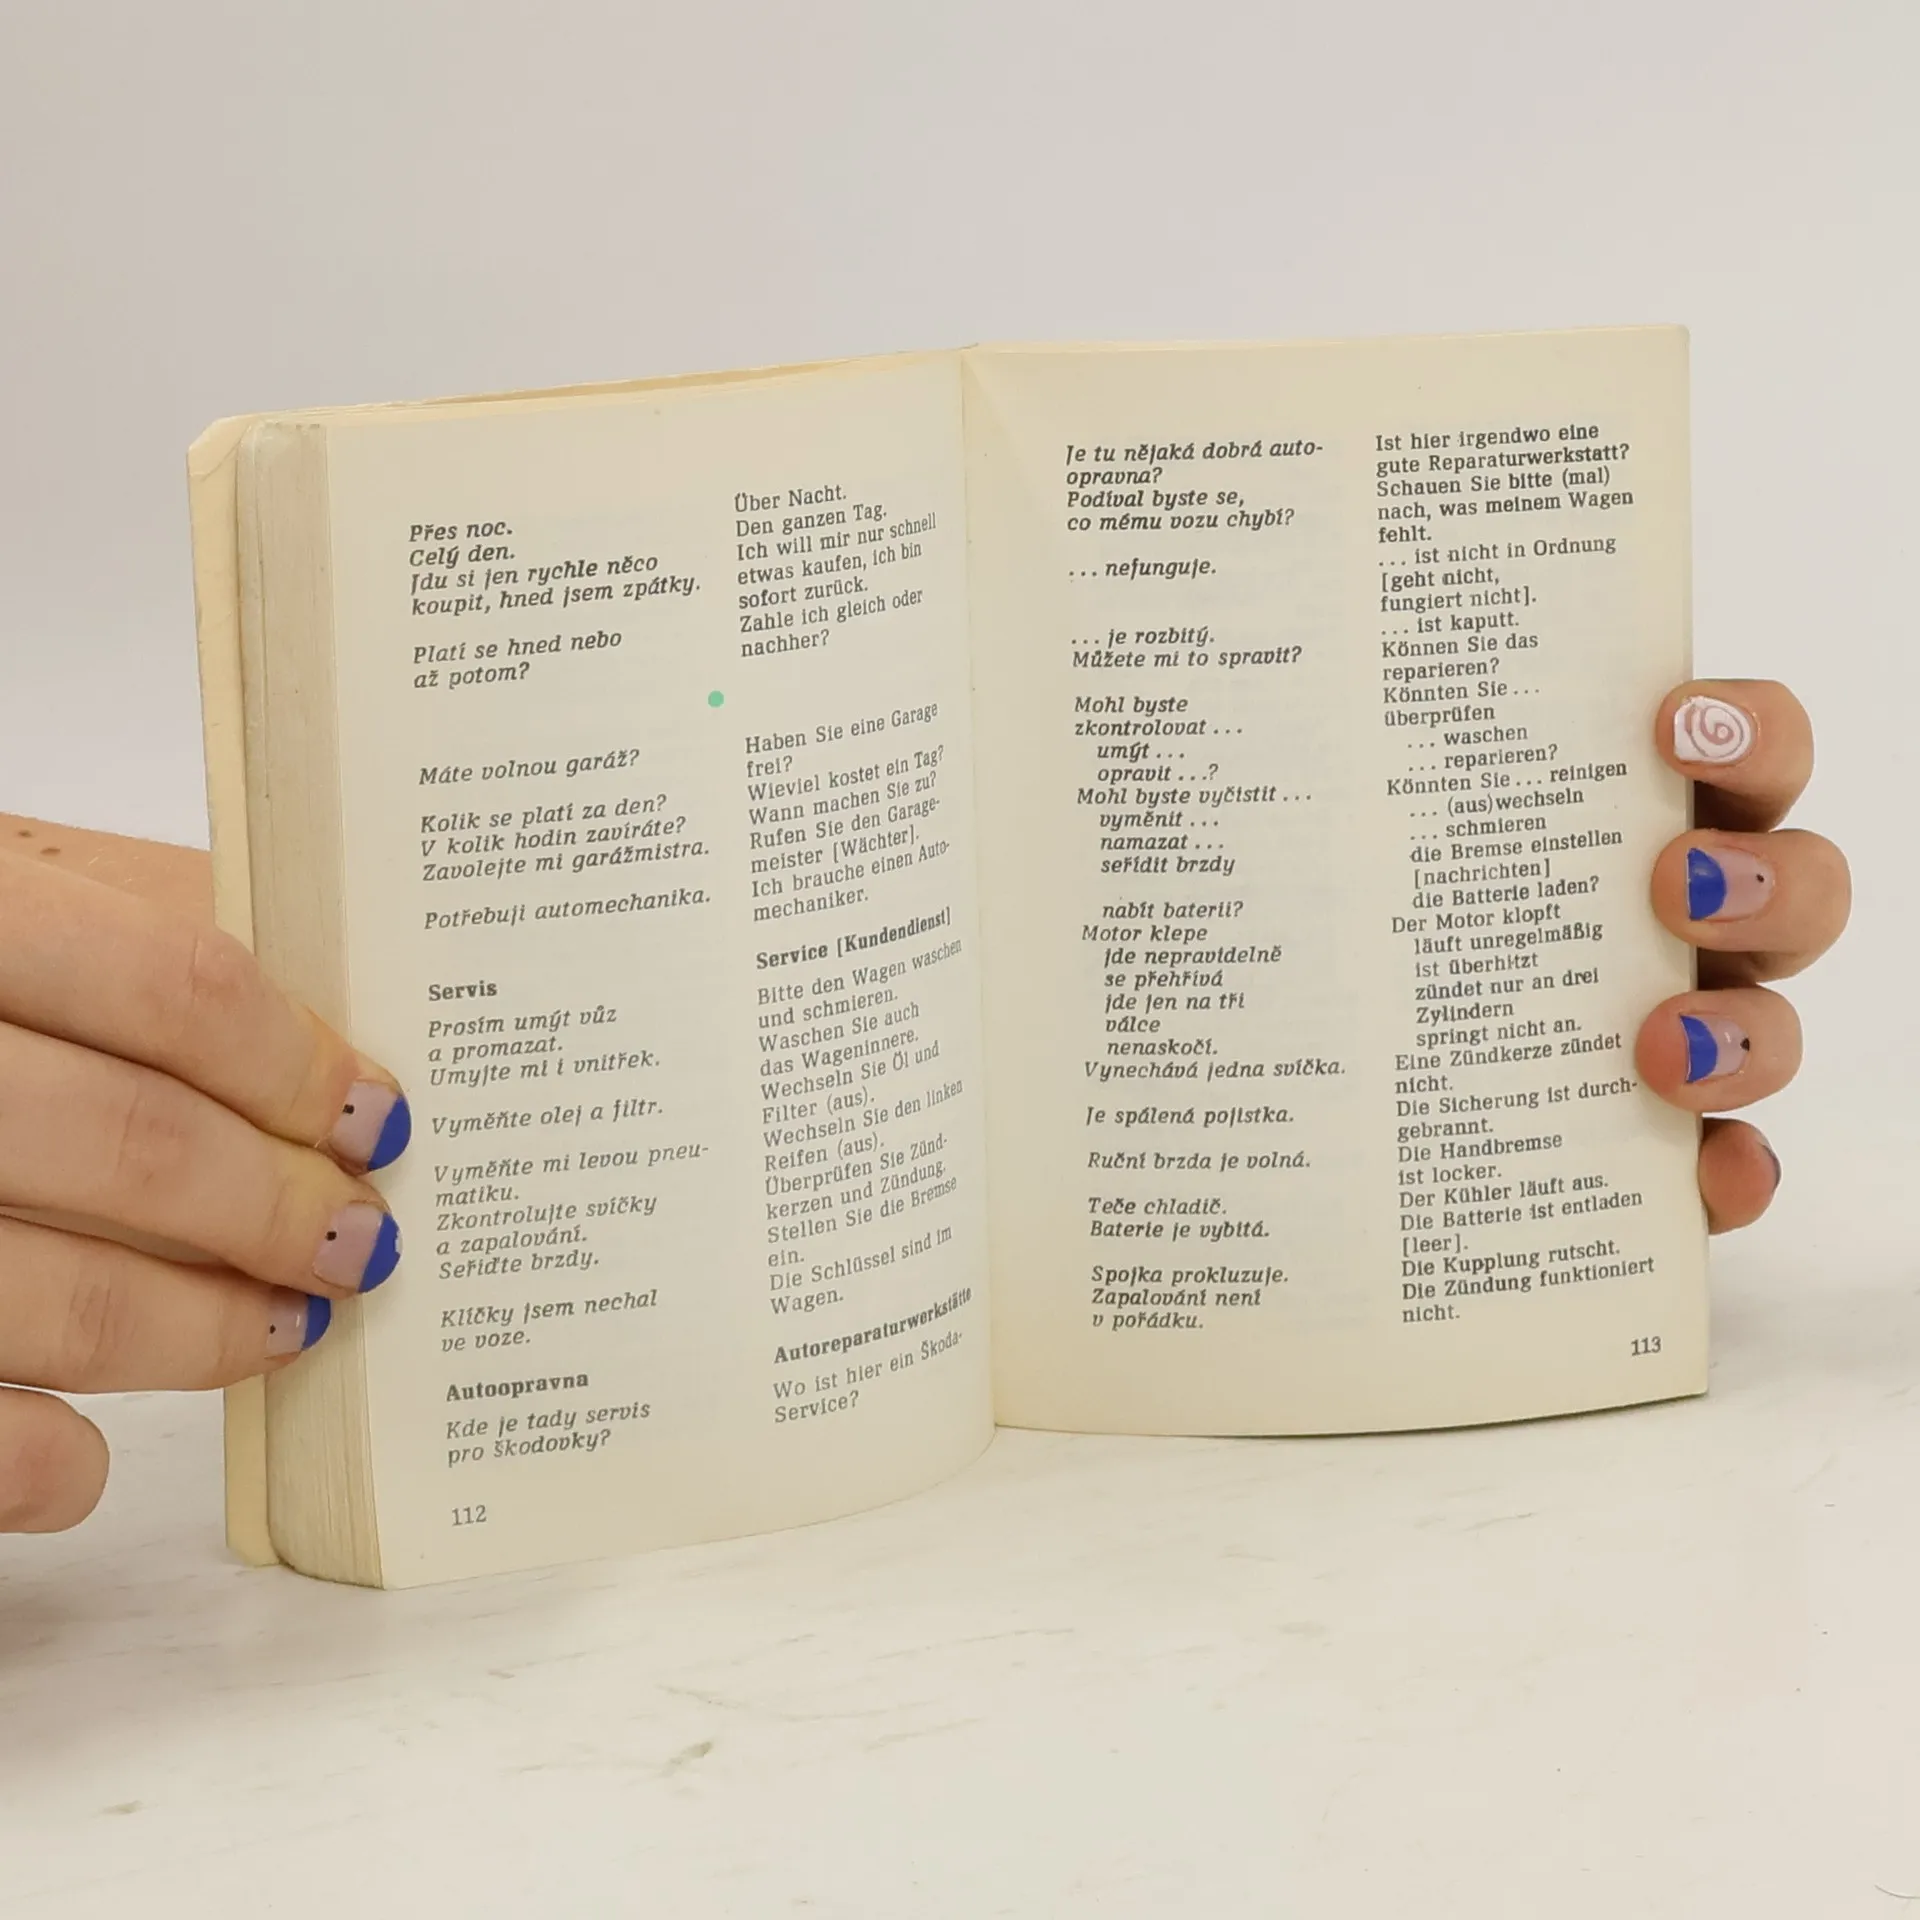 Přes noc.
Celý den.
Jdu si jen rychle něco
koupit, hned jsem zpátky.
Platí se hned nebo
až potom?
Máte volnou garáž?
Kolik se platí za den?
V kolik hodin zavíráte?
Zavolejte mi garážmistra.
Potřebuji automechanika.
Servis
Prosím umýt vůz
a promazat.
Umyjte mi i vnitřek.
Vyměňte olej a filtr.
Vyměňte mi levou pneu-
matiku.
Zkontrolujte svíčky
a zapalování.
Seřiďte brzdy.
Klíčky jsem nechal
ve voze.
Autoopravna
Kde je tady servis
pro škodovky?
112
Über Nacht.
Den ganzen Tag.
Ich will mir nur schnell
etwas kaufen, ich bin
sofort zurück.
Zahle ich gleich oder
nachher?
Haben Sie eine Garage
frei?
Wieviel kostet ein Tag?
Wann machen Sie zu?
Rufen Sie den Garage-
meister [Wächter].
Ich brauche einen Auto-
mechaniker.
Service [Kundendienst]
Bitte den Wagen waschen
und schmieren.
Waschen Sie auch
das Wageninnere.
Wechseln Sie Öl und
Filter (aus).
Wechseln Sie den linken
Reifen (aus).
Überprüfen Sie Zünd-
kerzen und Zündung.
Stellen Sie die Bremse
ein.
Die Schlüssel sind im
Wagen.
Autoreparaturwerkstätte
Wo ist hier ein Škoda-
Service?
Je tu nějaká dobrá auto-
opravna?
Podíval byste se,
co mému vozu chybí?
... nefunguje.
... je rozbitý.
Můžete mi to spravit?
Mohl byste
zkontrolovat ...
umýt ...
opravit ...?
Mohl byste vyčistit ...
vyměnit ...
namazat ...
seřídit brzdy
nabít baterii?
Motor klepe
jde nepravidelně
se přehřívá
jde jen na tři
válce
nenaskočí.
Vynechává jedna svíčka.
Je spálená pojistka.
Ruční brzda je volná.
Teče chladič.
Baterie je vybitá.
Spojka prokluzuje.
Zapalování není
v pořádku.
Ist hier irgendwo eine
gute Reparaturwerkstatt?
Schauen Sie bitte (mal)
nach, was meinem Wagen
fehlt.
... ist nicht in Ordnung
[geht nicht,
fungiert nicht].
... ist kaputt.
Können Sie das
reparieren?
Könnten Sie ...
überprüfen
... waschen
... reparieren?
Könnten Sie ... reinigen
... (aus)wechseln
... schmieren
die Bremse einstellen
[nachrichten]
die Batterie laden?
Der Motor klopft
läuft unregelmäßig
ist überhitzt
zündet nur an drei
Zylindern
springt nicht an.
Eine Zündkerze zündet
nicht.
Die Sicherung ist durch-
gebrannt.
Die Handbremse
ist locker.
Der Kühler läuft aus.
Die Batterie ist entladen
[leer].
Die Kupplung rutscht.
Die Zündung funktioniert
nicht.
113